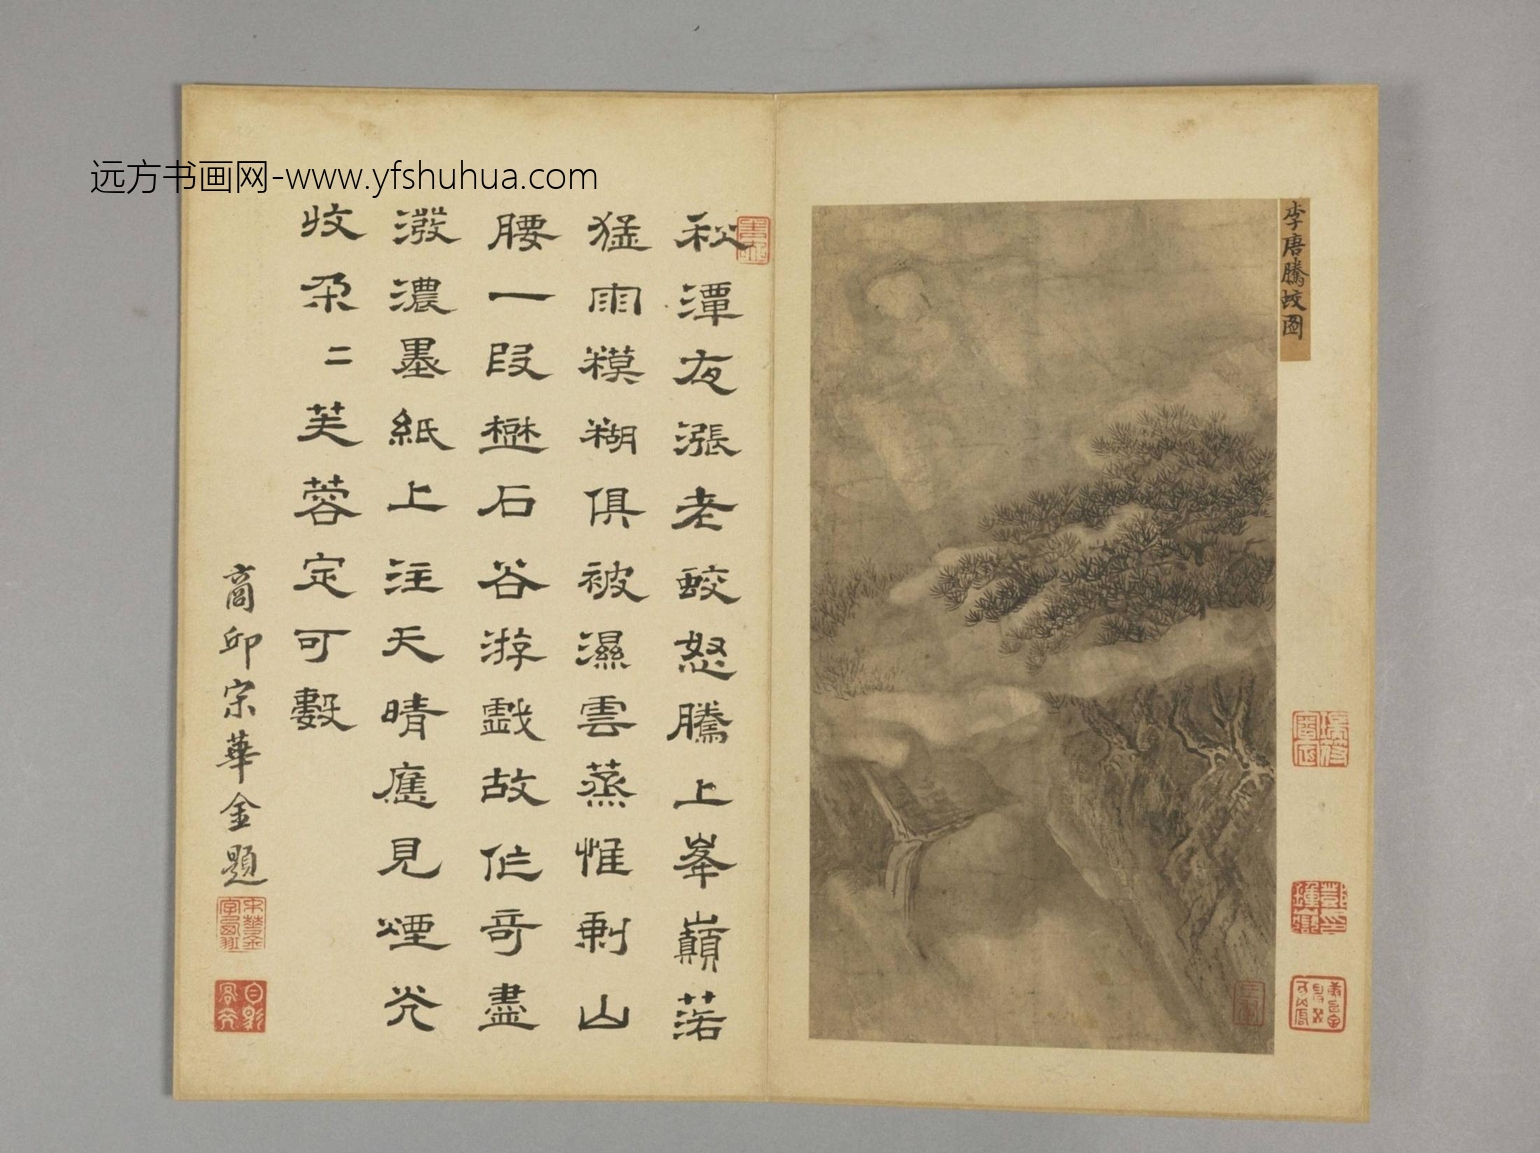 远方书画网-www.yfshuhua.com
李唐騰蛟图
秋潭夜漲老蛟怒騰上峯巔若
猛雨糢糊俱被濕雲蒸惟剩山
腰一段樾石谷游戲故作奇盡
潑濃墨紙上注天晴應見煙光
收朵二芙蓉定可數
商邱宗華金題